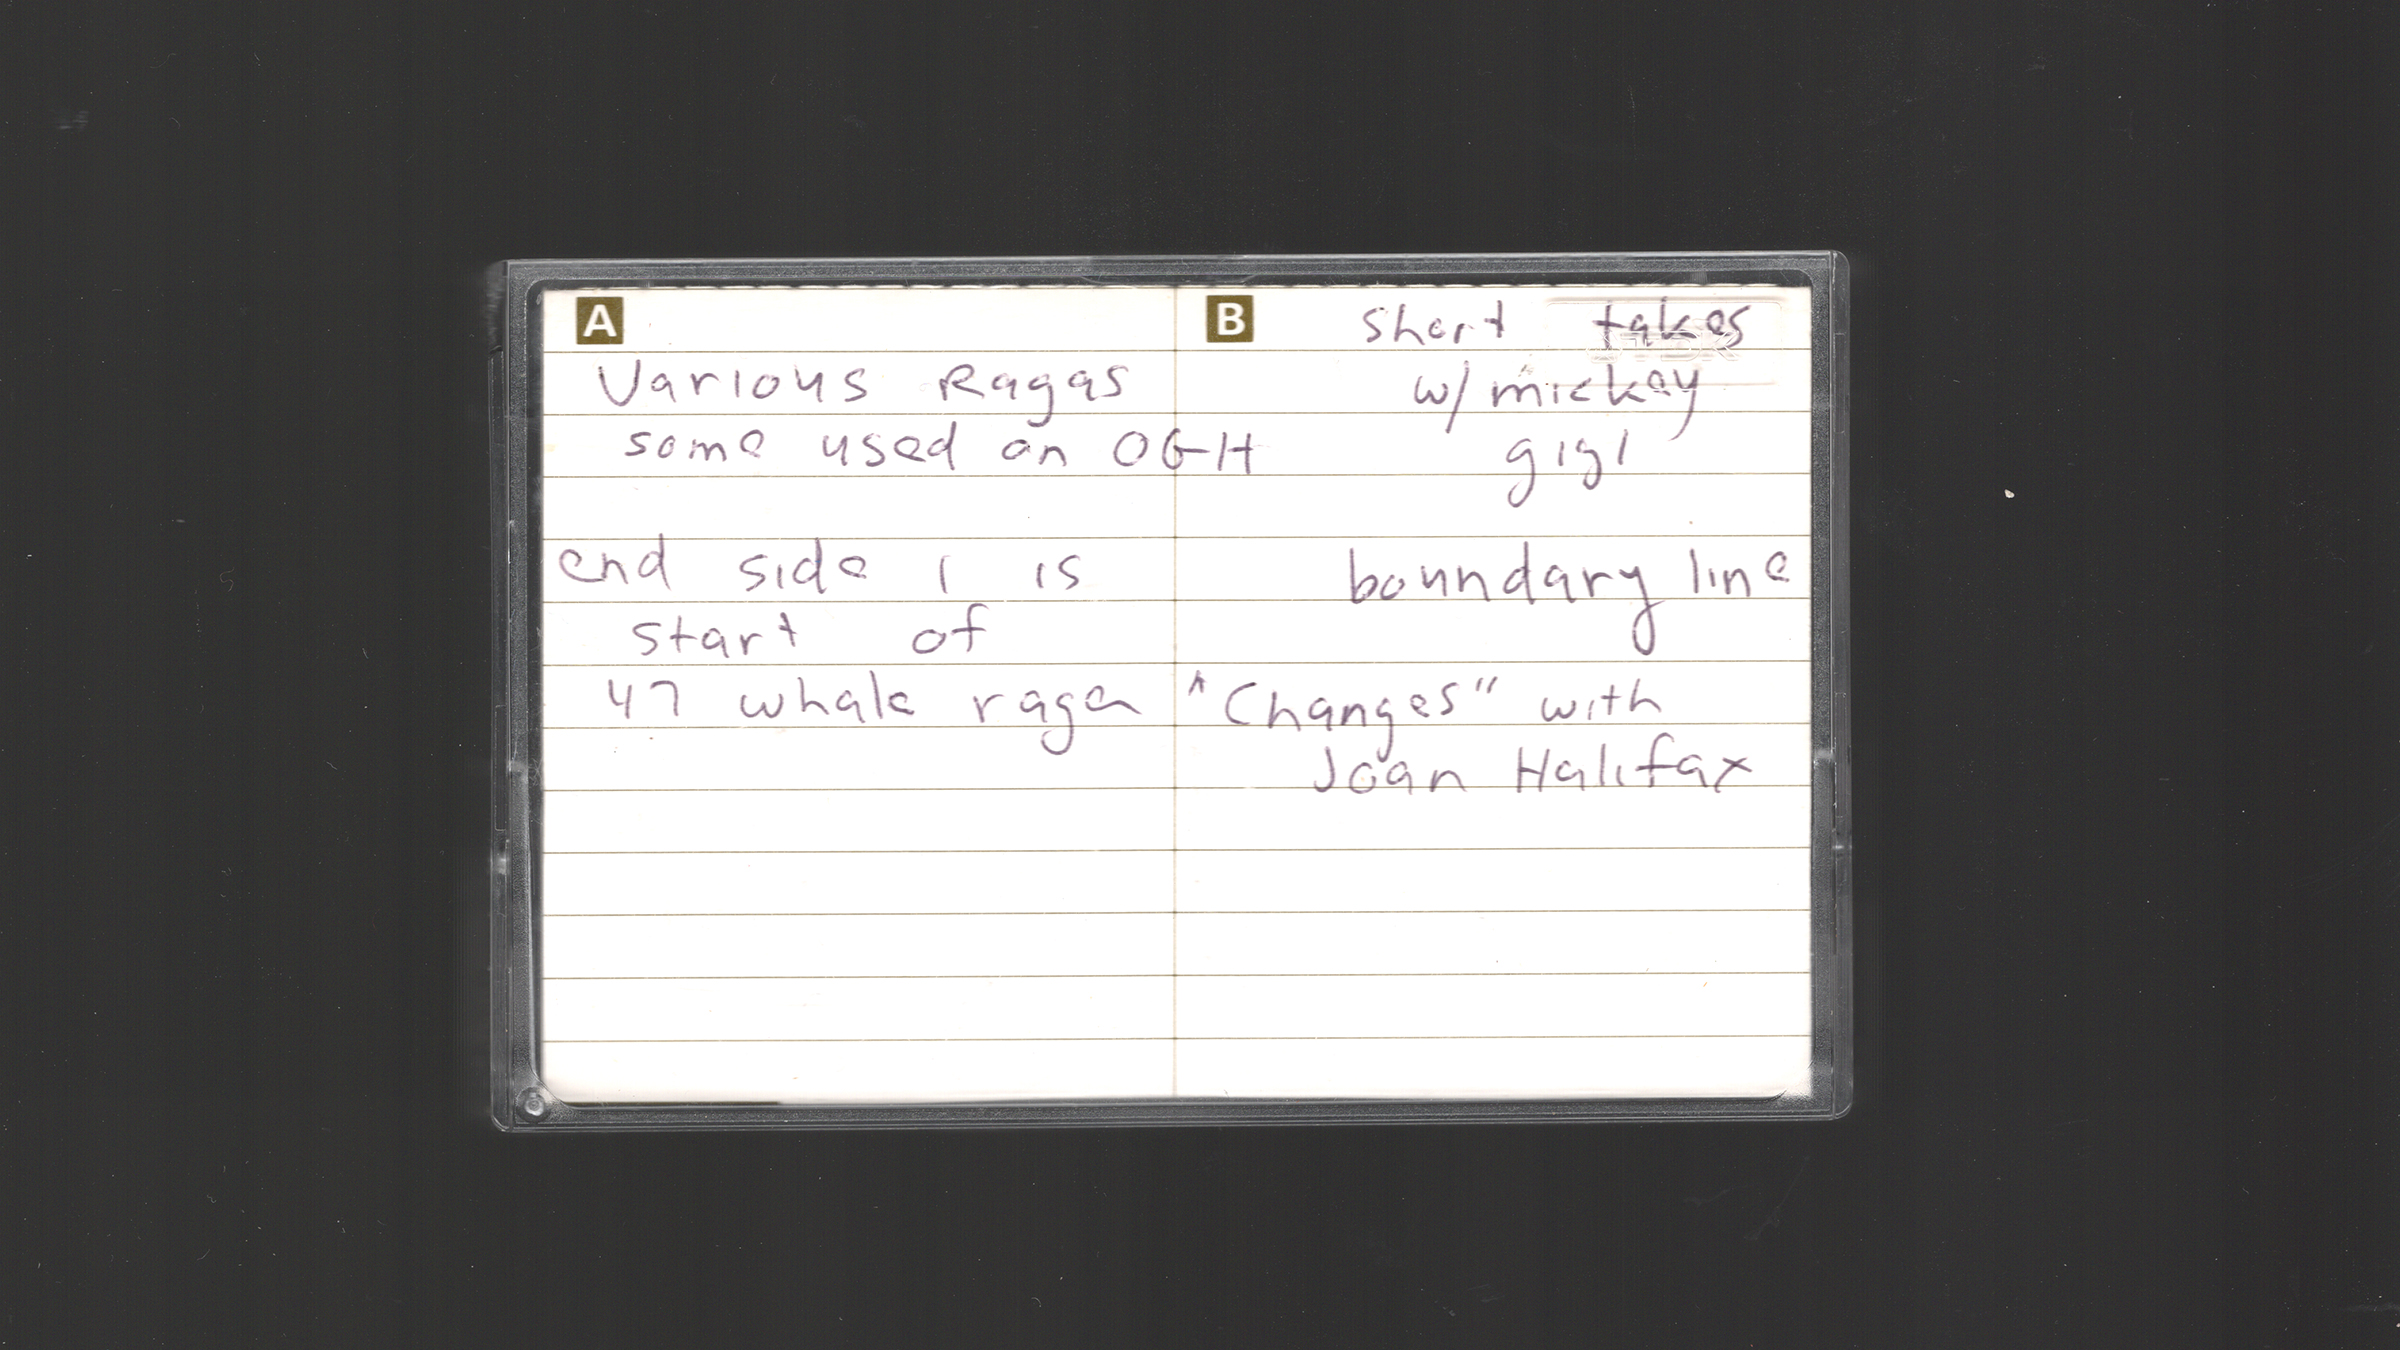 A
Various Ragas
some used on OGH
end side 1 is
start of
47 whale raga
B
short takes
w/ mickey
gigi
boundary line
"Changes" with
Joan Halifax